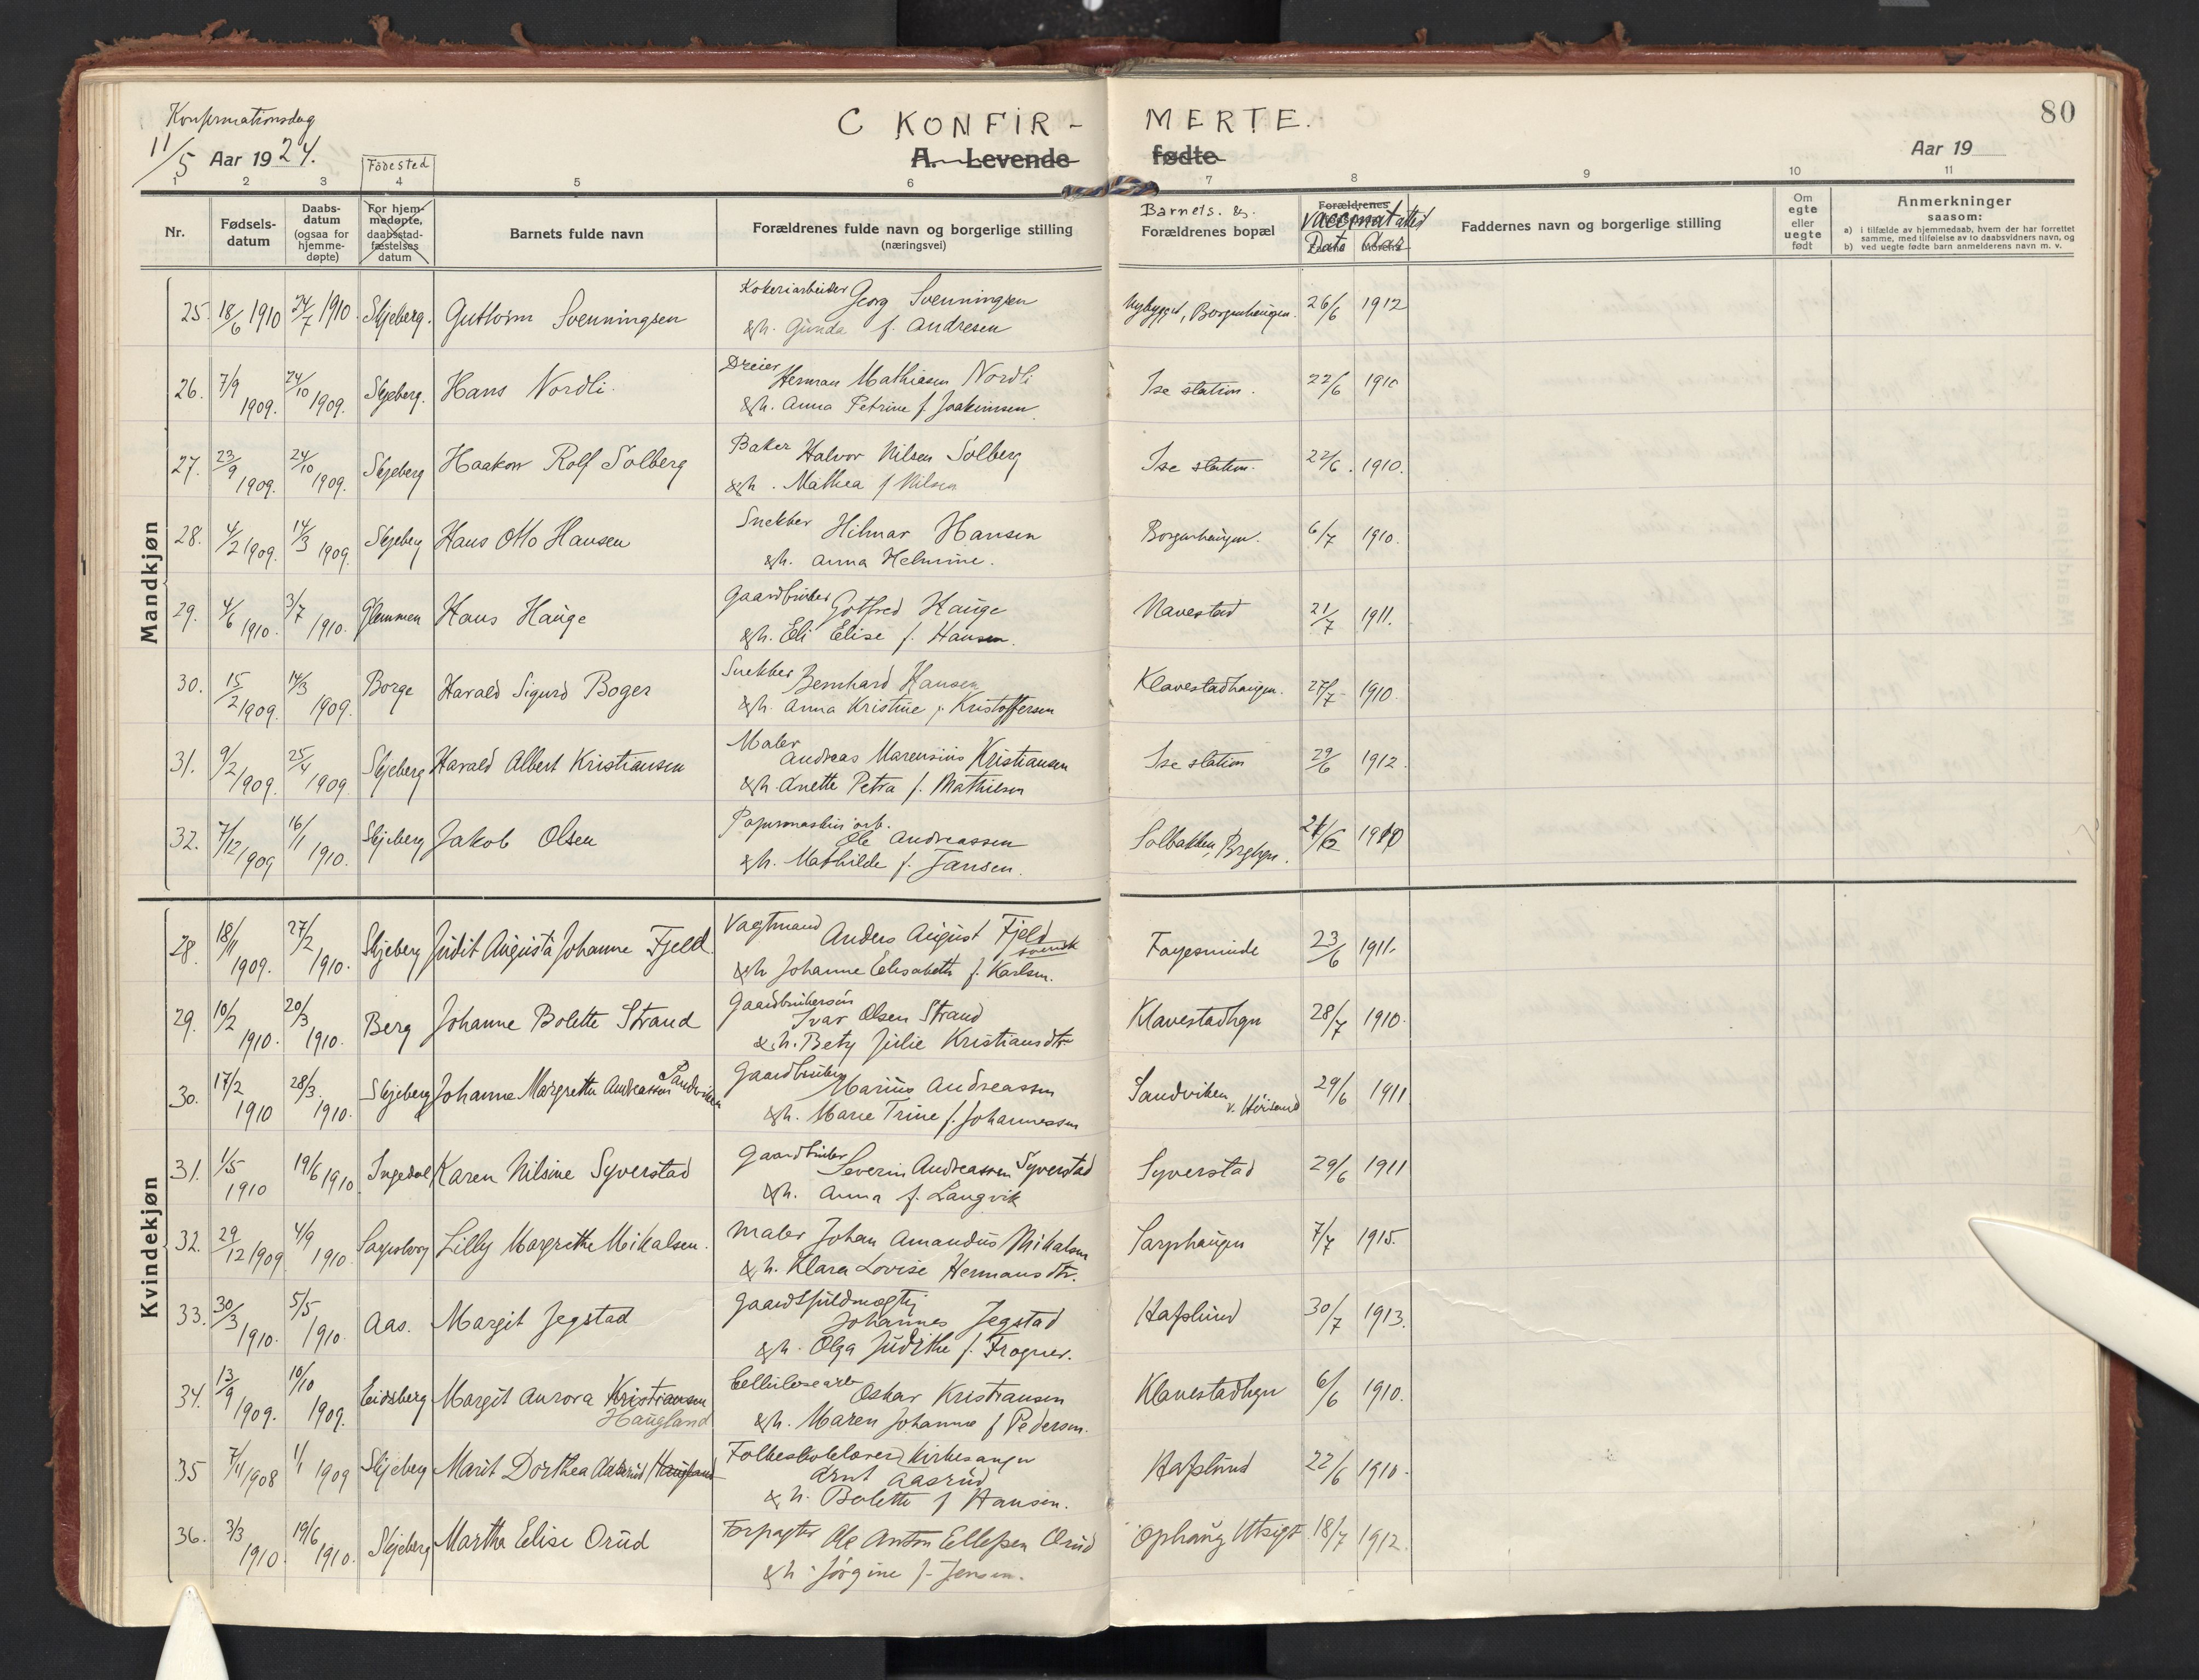 Konfirmationsdag
11/5 Aar 1924.
C KONFIR- MERTE.
A. Levende fødte
80
Aar 19
Fødested
1 2 3 4 5 6 7 8 9 10 11
Nr.
Fødsels-
datum
Daabs-
datum
(ogsaa for
hjemme-
døpte)
For hjem-
medøpte,
daabsstad-
fæstelses
datum
Barnets fulde navn
Forældrenes fulde navn og borgerlige stilling
(næringsvei)
Barnets. &.
Forældrenes bopæl
Forældrenes
Vaccinatattest
Dato Aar
Faddernes navn og borgerlige stilling
Om
egte
eller
uegte
født
Anmerkninger
saasom:
a) i tilfælde av hjemmedaab, hvem der har forrettet
samme, med tilføielse av to daabsvidners navn, og
b) ved uegte fødte barn anmelderens navn m. v.
Mandkjøn
25. 18/6 1910 24/7 1910. Skjeberg. Guthorm Svenningsen Kokeriarbeider Georg Svenningsen
&h. Gunda f. Andresen
Borgenhaugen. 26/6 1912
26. 7/9 1909. 24/10 1909. Skjeberg. Hans Nordli. Dreier Herman Mathiesen Nordli
&h. Anna Petrine f. Joakimsen
Ise station. 22/6 1910
27. 23/9 1909. 24/10 1909. Skjeberg Haakon Rolf Solberg Baker Halvor Nilsen Solberg
&h. Mathea f Nilsen
Ise station. 22/6. 1910.
28. 4/2 1909. 14/3 1909. Skjeberg Hans Otto Hansen Snekker Hilmar Hansen
&h. Anna Helmine.
Borgenhaugen. 6/7 1910.
29. 4/6 1910. 3/7 1910. Glemmen Hans Hauge Gaardbruker Gotfred Hauge
&h. Eli Elise f. Hansen.
Navestad 21/7 1911.
30. 15/2 1909. 14/3 1909. Borge Harald Sigurd Boger Snekker Bernhard Hansen
&h. Anna Kristine f. Kristoffersen
Klavestadhaugen. 27/7 1910.
31. 9/2 1909. 25/4 1909. Skjeberg Harald Albert Kristiansen Maler Andreas Marensius Kristiansen
&h. Anette Petra f. Mathisen
Ise station 29/6 1912.
32. 7/12 1909 16/1 1910. Skjeberg Jakob Olsen Papirmaskin arb. Ole Andreassen
&h. Mathilde f. Jansen.
Solbakken, 1910
Kvindekjøn
28. 18/11 1909. 27/2 1910. Skjeberg Judit Augusta Johanne Fjeld Vagtmand Anders August Fjeld
svensk
&h Johanne Elisabeth f. Karlsen.
Fagesminde 23/6 1911.
29. 10/2 1910. 20/3 1910. Berg Johanne Bolette Strand Gaardbrukersøn Ivar Olsen Strand
&h. Bety Julie Kristiansdtr
Klavestadhgn 28/7 1910.
30. 17/2 1910 28/3. 1910. Skjeberg Johanne Margrethe Andreassen Sandviken Gaardbruker Marius Andreassen
&h. Marie Trine f. Johannessen
Sandviken
29/6 1911
31. 1/5 1910 19/6 1910 Ingedal Karen Nilsine Syverstad Gaardbruker Severin Andreassen Syverstad
&h. Anna f. Langvik
Syverstad 29/6 1911
32. 29/12 1909 4/9 1910. Sarpsborg Lilly Margrethe Mikalsen. Maler Johan Amandus Mikalsen
&h. Klara Lovise Hermansdtr.
Sarphaugen 7/7 1915.
33. 30/3 1910. 5/5 1910. Aas. Margit Jegstad Gaardsfuldmægtig
Johannes Jegstad
&h. Olga Judithe f. Frogner.
Hafslund 30/7 1913.
34. 13/9 1909. 10/10 1909. Eidsberg Margit Aurora Kristiansen
Haugland
Cellulosearb Oskar Kristiansen
&h. Maren Johanne f Pedersen.
Klavestadhgn 6/6 1910.
35 7/11 1908 1/1 1909 Skjeberg Marit Dorthea Aaserud Haugland Folkeskolelærer, kirkesanger
Arnt Aasrud
&h. Bolette f Hansen.
Hafslund 22/6 1910.
36. 3/3 1910. 19/6 1910. Skjeberg Martha Elise Orud Forpagter Ole Anton Ellefsen Orud
&h. Jørgine f. Jensen.
Ophaug Utsigt 18/7 1912.